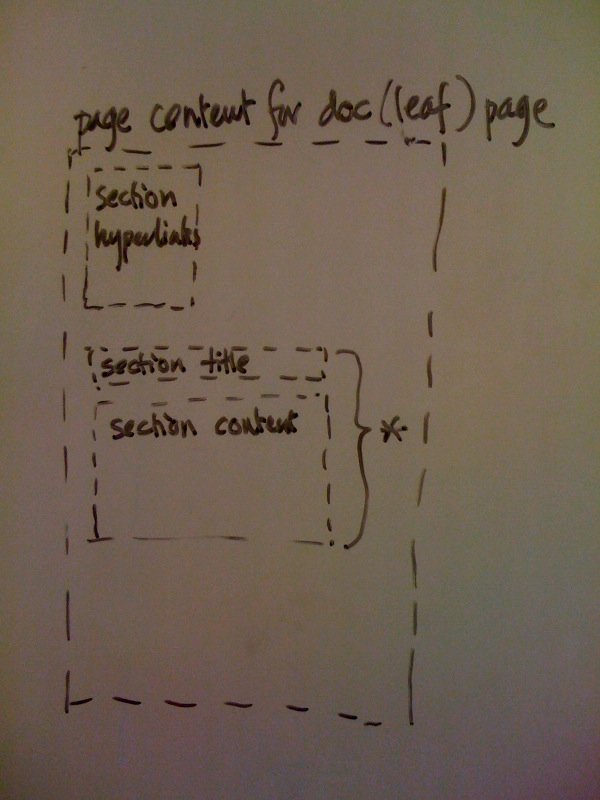 page content for doc (leaf) page
section
hyperlinks
section title
section content
*